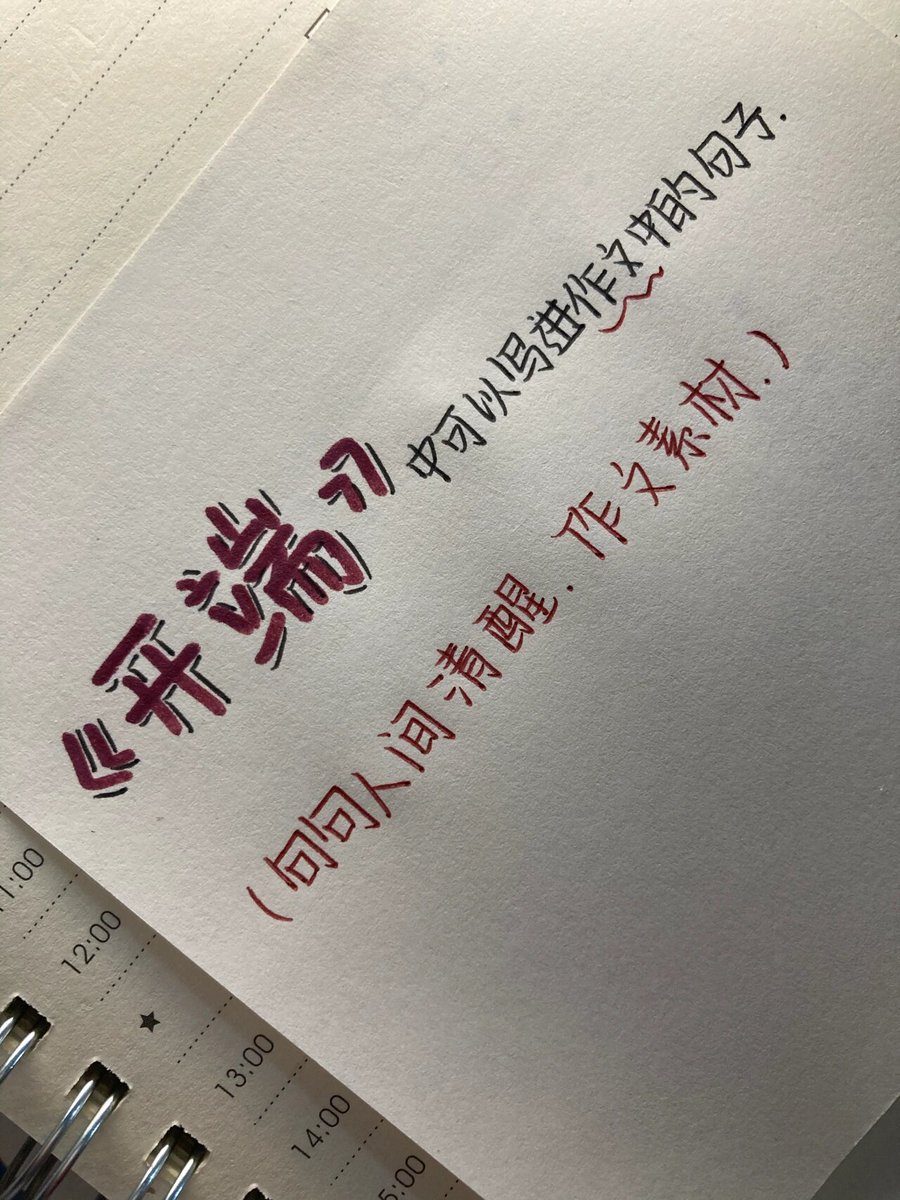 《开端》中可以写进作文中的句子.
(句句人间清醒. 作文素材.)
11:00
12:00
★
13:00
14:00
15:00